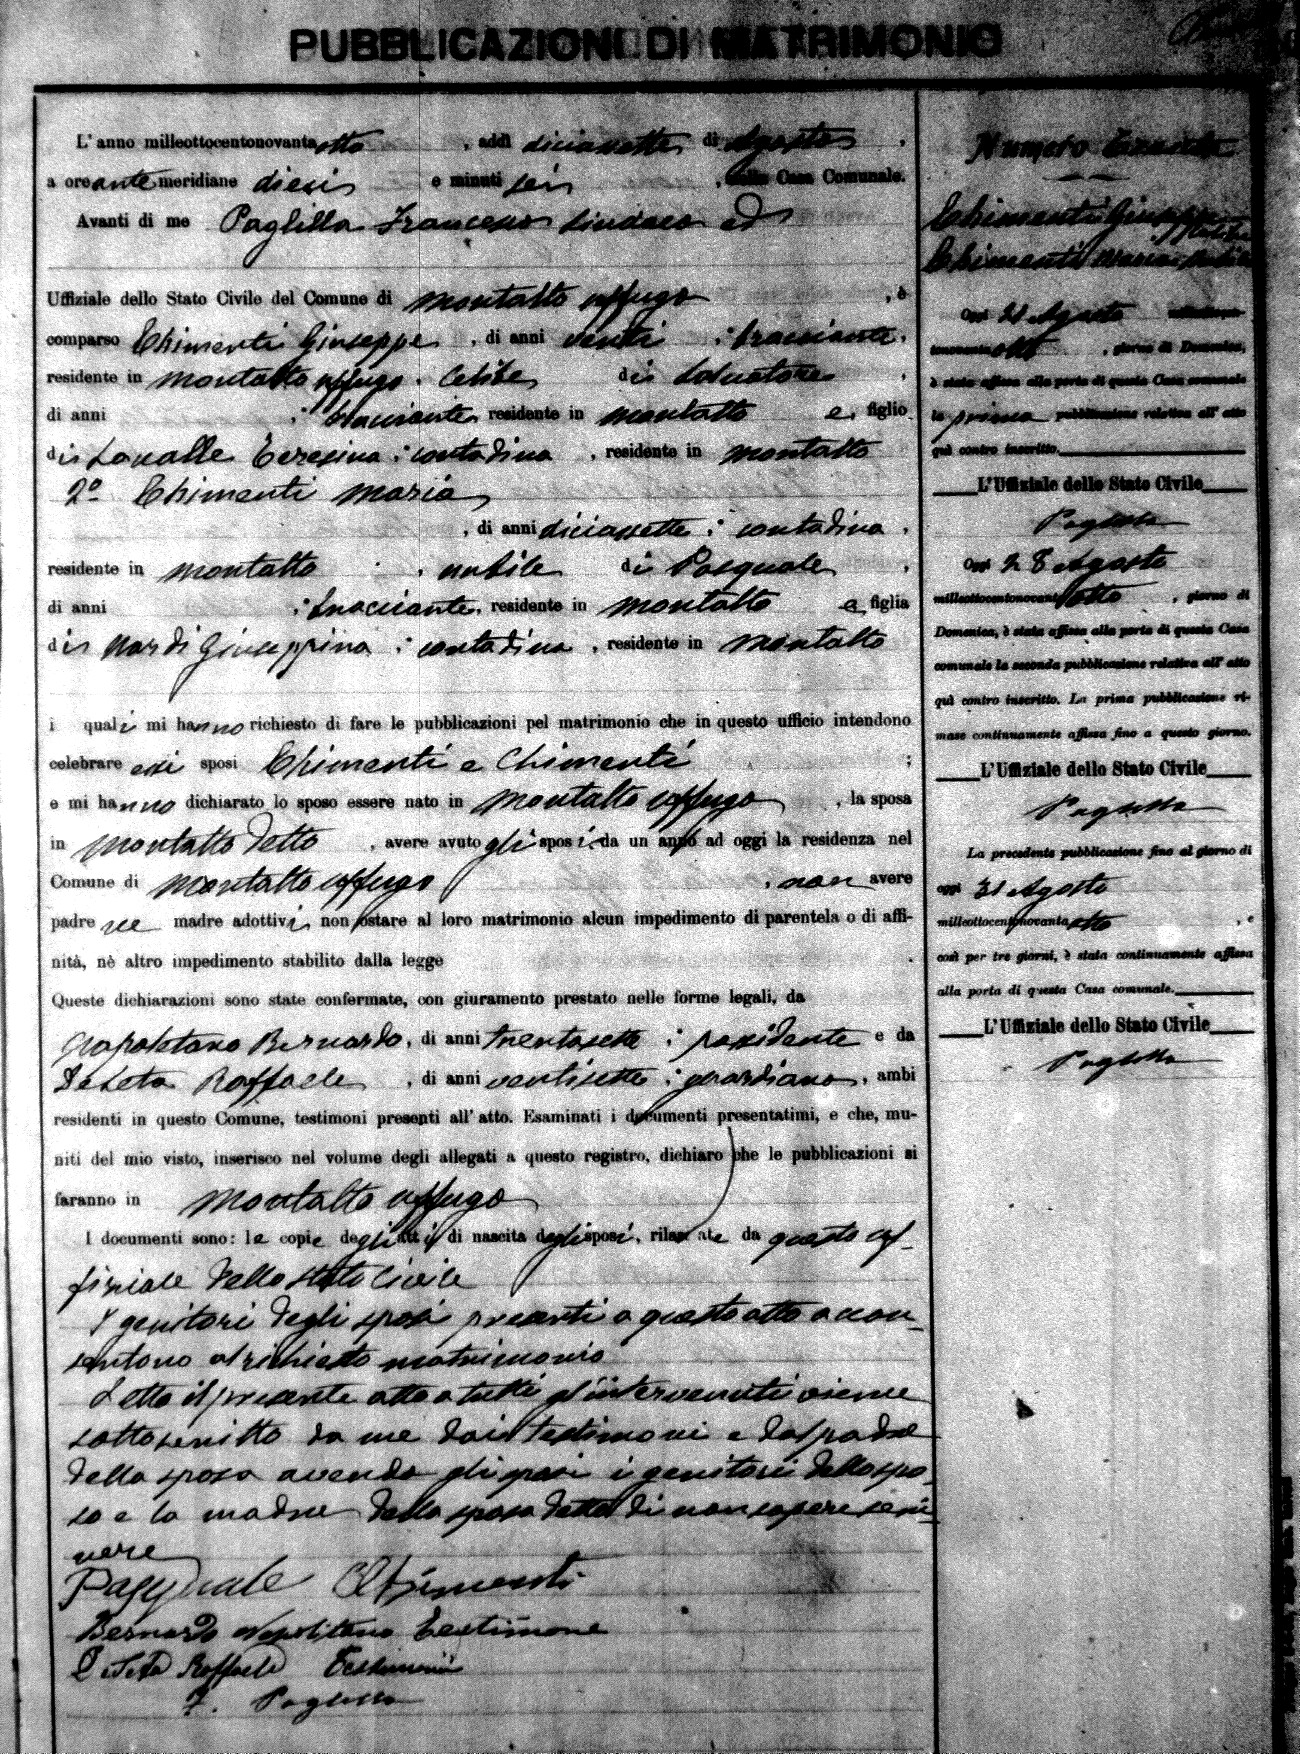 PUBBLICAZIONI DI MATRIMONIO
L'anno milleottocentonovantaotto, addì diciassette di Agosto,
a ore antemeridiane dieci e minuti sei, nella Casa Comunale.
Avanti di me Paglilla Francesco Sindaco ed
Uffiziale dello Stato Civile del Comune di Montalto Uffugo, è
comparso Chimenti Giuseppe, di anni venti; bracciante,
residente in Montalto Uffugo. Celibe di Salvatore,
di anni ; bracciante, residente in Montalto e, figlio
di Lavalle Teresina; contadina, residente in Montalto
2º Chimenti Maria
, di anni diciassette; contadina,
residente in Montalto. nubile di Pasquale,
di anni ; bracciante, residente in Montalto e figlia
di Nardi Giuseppina; contadina, residente in Montalto
i quali mi hanno richiesto di fare le pubblicazioni pel matrimonio che in questo ufficio intendono
celebrare essi sposi Chimenti e Chimenti ;
e mi hanno dichiarato lo sposo essere nato in Montalto Uffugo, la sposa
in Montalto detto, avere avuto gli sposi da un anno ad oggi la residenza nel
Comune di Montalto Uffugo, non avere
padre ne madre adottivi, non ostare al loro matrimonio alcun impedimento di parentela o di affi-
nità, nè altro impedimento stabilito dalla legge.
Queste dichiarazioni sono state confermate, con giuramento prestato nelle forme legali, da
Napolitano Bernardo, di anni trentasette; possidente e da
DeSeta Raffaele, di anni ventisette; guardiano, ambi
residenti in questo Comune, testimoni presenti all'atto. Esaminati i documenti presentatimi, e che, mu-
niti del mio visto, inserisco nel volume degli allegati a questo registro, dichiaro che le pubblicazioni si
faranno in Montalto Uffugo
I documenti sono: le copie degli atti di nascita degli sposi, rilasciate da questo uf-
fiziale dello stato Civile
I genitori degli sposi presenti a questo atto accon-
sentono al richiesto matrimonio
Letto il presente atto a tutti gl'intervenuti viene
sottoscritto da me dai testimoni e dal padre
della sposa avendo gli sposi i genitori dello spo-
so e la madre della sposa detto di non sapere scri-
vere
Pasquale Chimenti
Bernardo Napolitano testimone
DeSeta Raffaele Testimonio
F. Paglilla
Numero
Chimenti Giuseppe
Chimenti Maria
Oggi 21 Agosto milleottocen-
tonovantaotto, giorno di Domenica,
è stata affissa alla porta di questa Casa comunale
la prima pubblicazione relativa all'atto
quì contro inscritto.
L'Uffiziale dello Stato Civile
Paglilla
Oggi 28 Agosto
milleottocentonovantotto, giorno di
Domenica, è stata affissa alla porta di questa Casa
comunale la seconda pubblicazione relativa all'atto
quì contro inscritto. La prima pubblicazione ri-
mase continuamente affissa fino a questo giorno.
L'Uffiziale dello Stato Civile
Paglilla
La precedente pubblicazione fino al giorno di
oggi 31 Agosto
milleottocentonovantaotto, e
così per tre giorni, è stata continuamente affissa
alla porta di questa Casa comunale.
L'Uffiziale dello Stato Civile
Paglilla